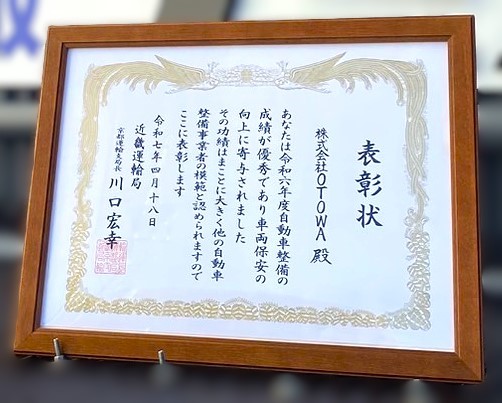 表彰状
株式会社OTOWA殿
あなたは令和六年度自動車整備の
成績が優秀であり車両保安の
向上に寄与されました
その功績はまことに大きく他の自動車
整備事業者の模範と認められますので
ここに表彰します
令和七年四月十八日
近畿運輸局
京都運輸支局長 川口宏幸